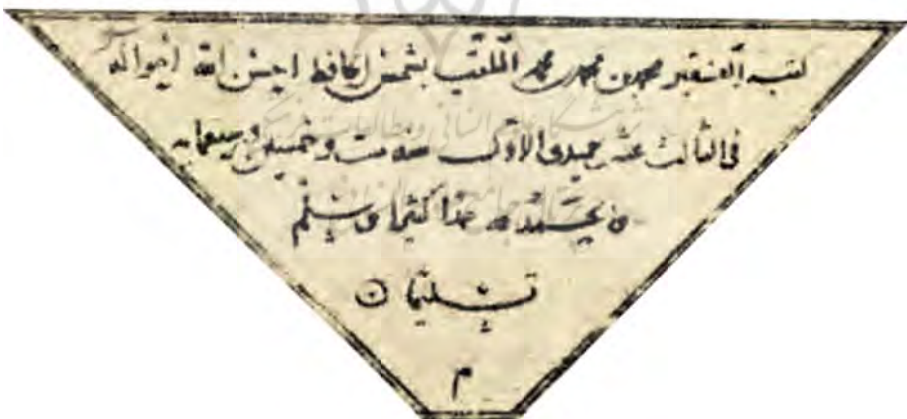 كتبه الفقير محمد بن محمد بن محمد الملقب بشمس الحافظ احسن الله احواله
فى الثالث عشر جمیدى الاول سنه ست وخمسين وسبعمايه
حمدا كثيرا وسلم
تسليما ن
م